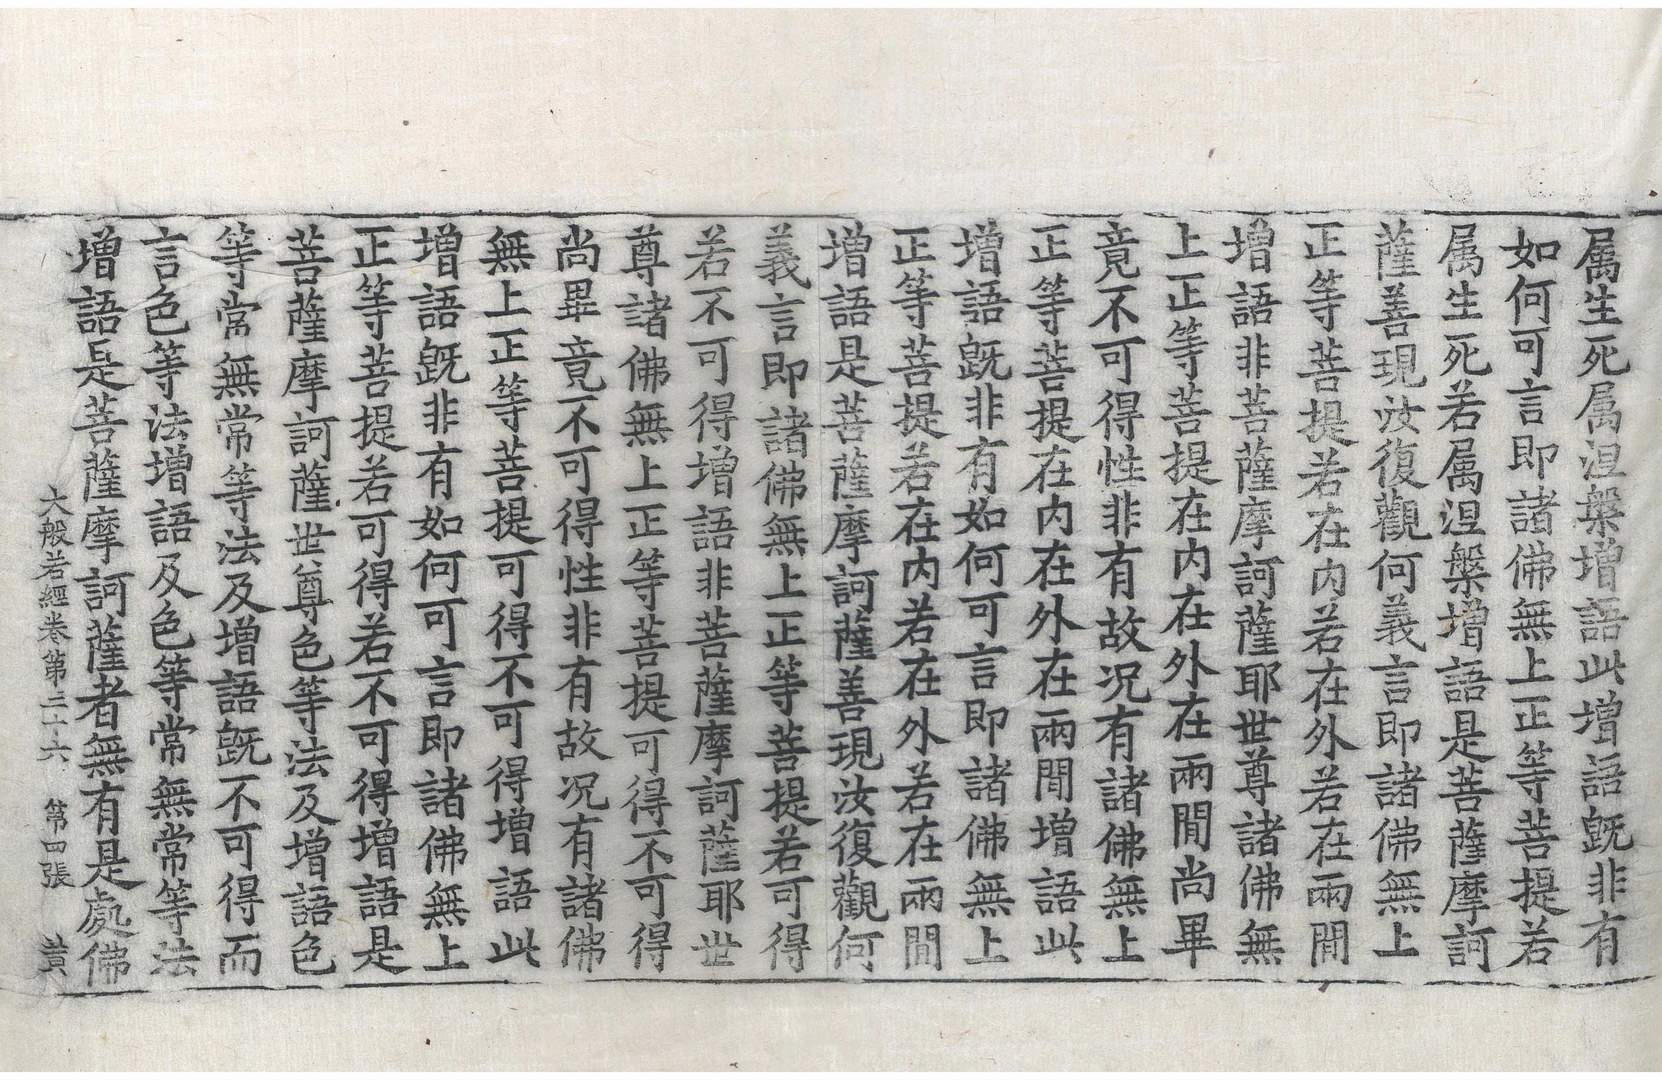 属生死属涅槃增語此增語旣非有
如何可言即諸佛無上正等菩提若
属生死若属涅槃增語是菩薩摩訶
薩善現汝復觀何義言即諸佛無上
正等菩提若在内若在外若在兩閒
增語非菩薩摩訶薩耶世尊諸佛無
上正等菩提在内在外在兩閒尚畢
竟不可得性非有故况有諸佛無上
正等菩提在内在外在兩閒增語此
增語旣非有如何可言即諸佛無上
正等菩提若在内若在外若在兩閒
增語是菩薩摩訶薩善現汝復觀何
義言即諸佛無上正等菩提若可得
若不可得增語非菩薩摩訶薩耶世
尊諸佛無上正等菩提可得不可得
尚畢竟不可得性非有故况有諸佛
無上正等菩提可得不可得增語此
增語旣非有如何可言即諸佛無上
正等菩提若可得若不可得增語是
菩薩摩訶薩世尊色等法及增語色
等常無常等法及增語旣不可得而
言色等法增語及色等常無常等法
增語是菩薩摩訶薩者無有是處佛
大般若經卷第三十六 第四張 黃